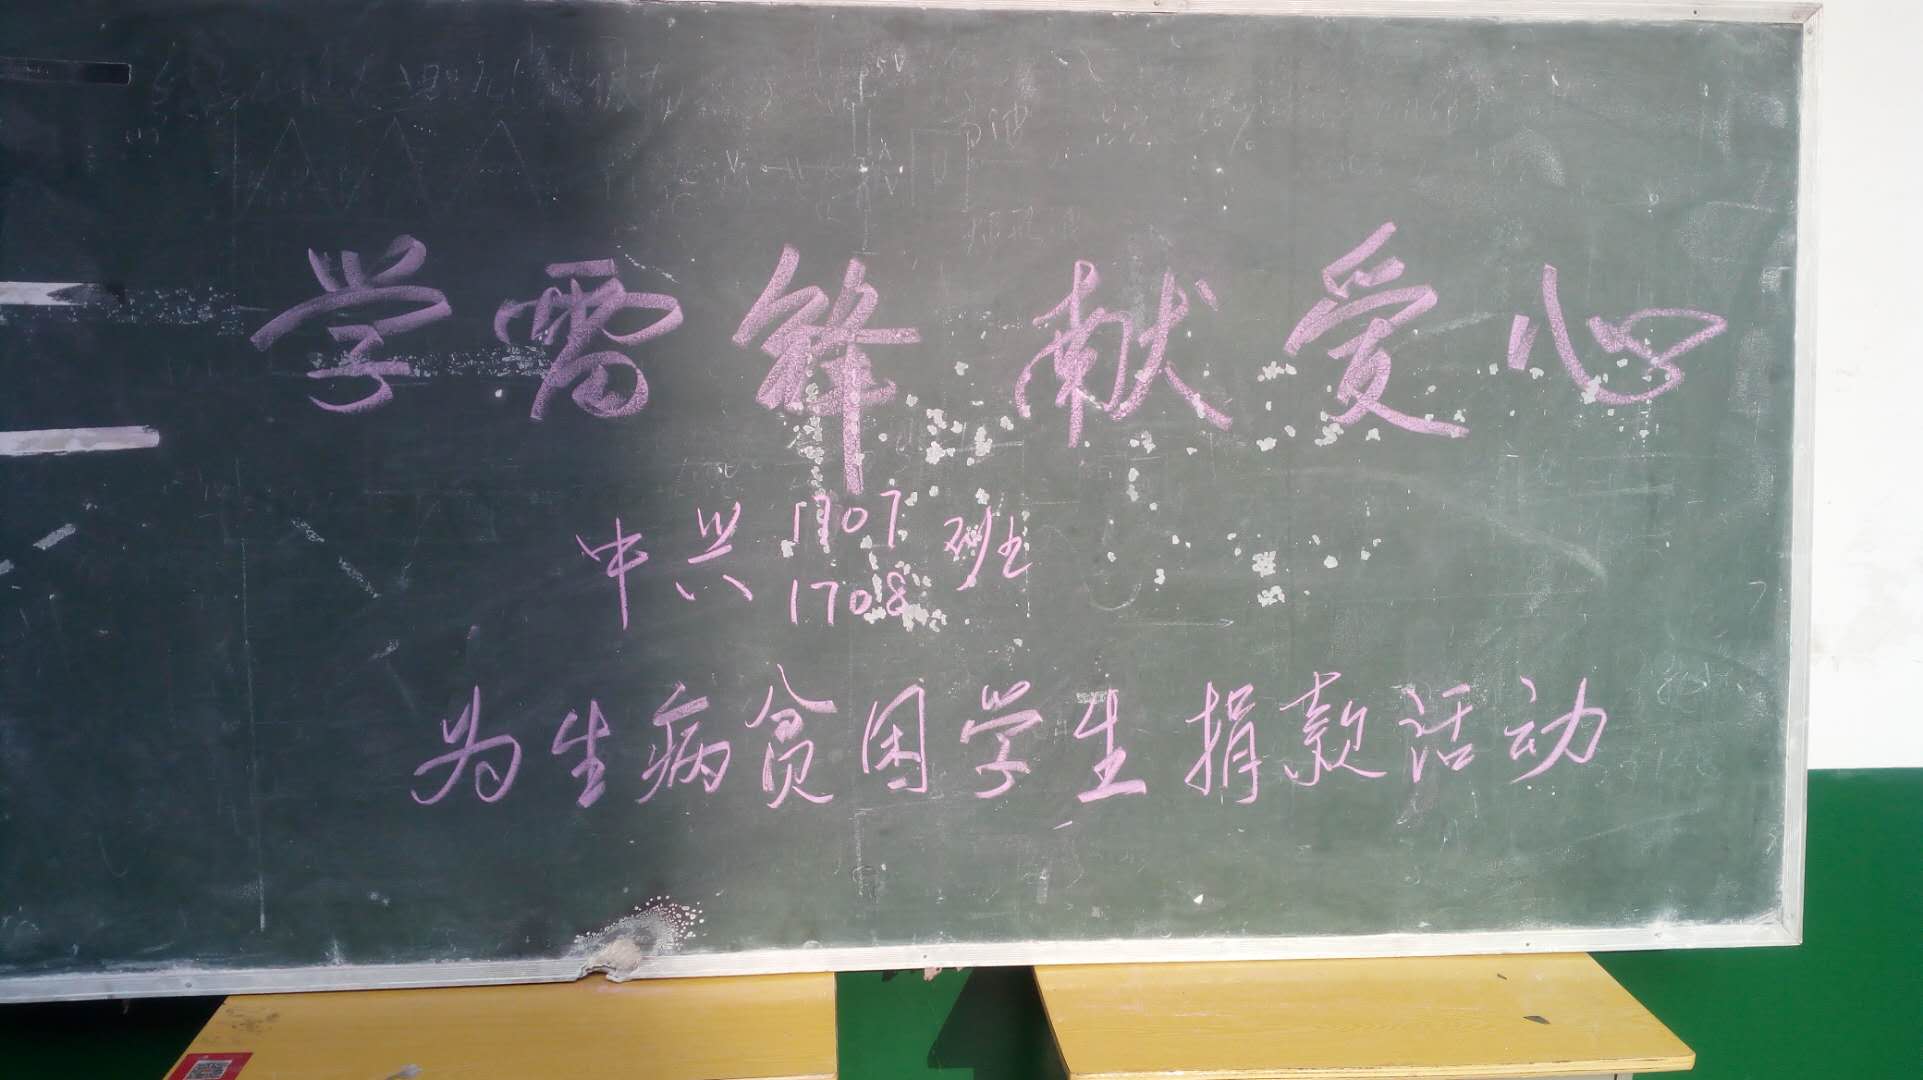 学雷锋 献爱心
中兴 1707 班
1708
为生病贫困学生捐款活动